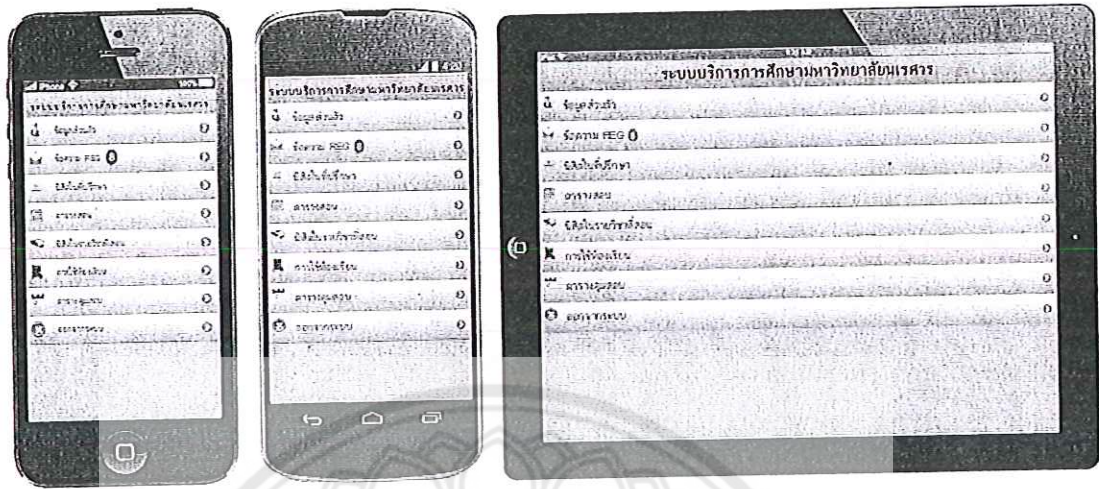 iPhone 100%
ระบบบริการการศึกษามหาวิทยาลัยนเรศวร
ข้อมูลส่วนตัว
ข้อความ REG 0
นิสิตในที่ปรึกษา
ตารางสอน
นิสิตในรายวิชาที่สอน
การใช้ห้องเรียน
ตารางคุมสอบ
ออกจากระบบ
4:20
ระบบบริการการศึกษามหาวิทยาลัยนเรศวร
ข้อมูลส่วนตัว
ข้อความ REG 0
นิสิตในที่ปรึกษา
ตารางสอน
นิสิตในรายวิชาที่สอน
การใช้ห้องเรียน
ตารางคุมสอบ
ออกจากระบบ
ระบบบริการการศึกษามหาวิทยาลัยนเรศวร
ข้อมูลส่วนตัว
ข้อความ REG 0
นิสิตในที่ปรึกษา
ตารางสอน
นิสิตในรายวิชาที่สอน
การใช้ห้องเรียน
ตารางคุมสอบ
ออกจากระบบ